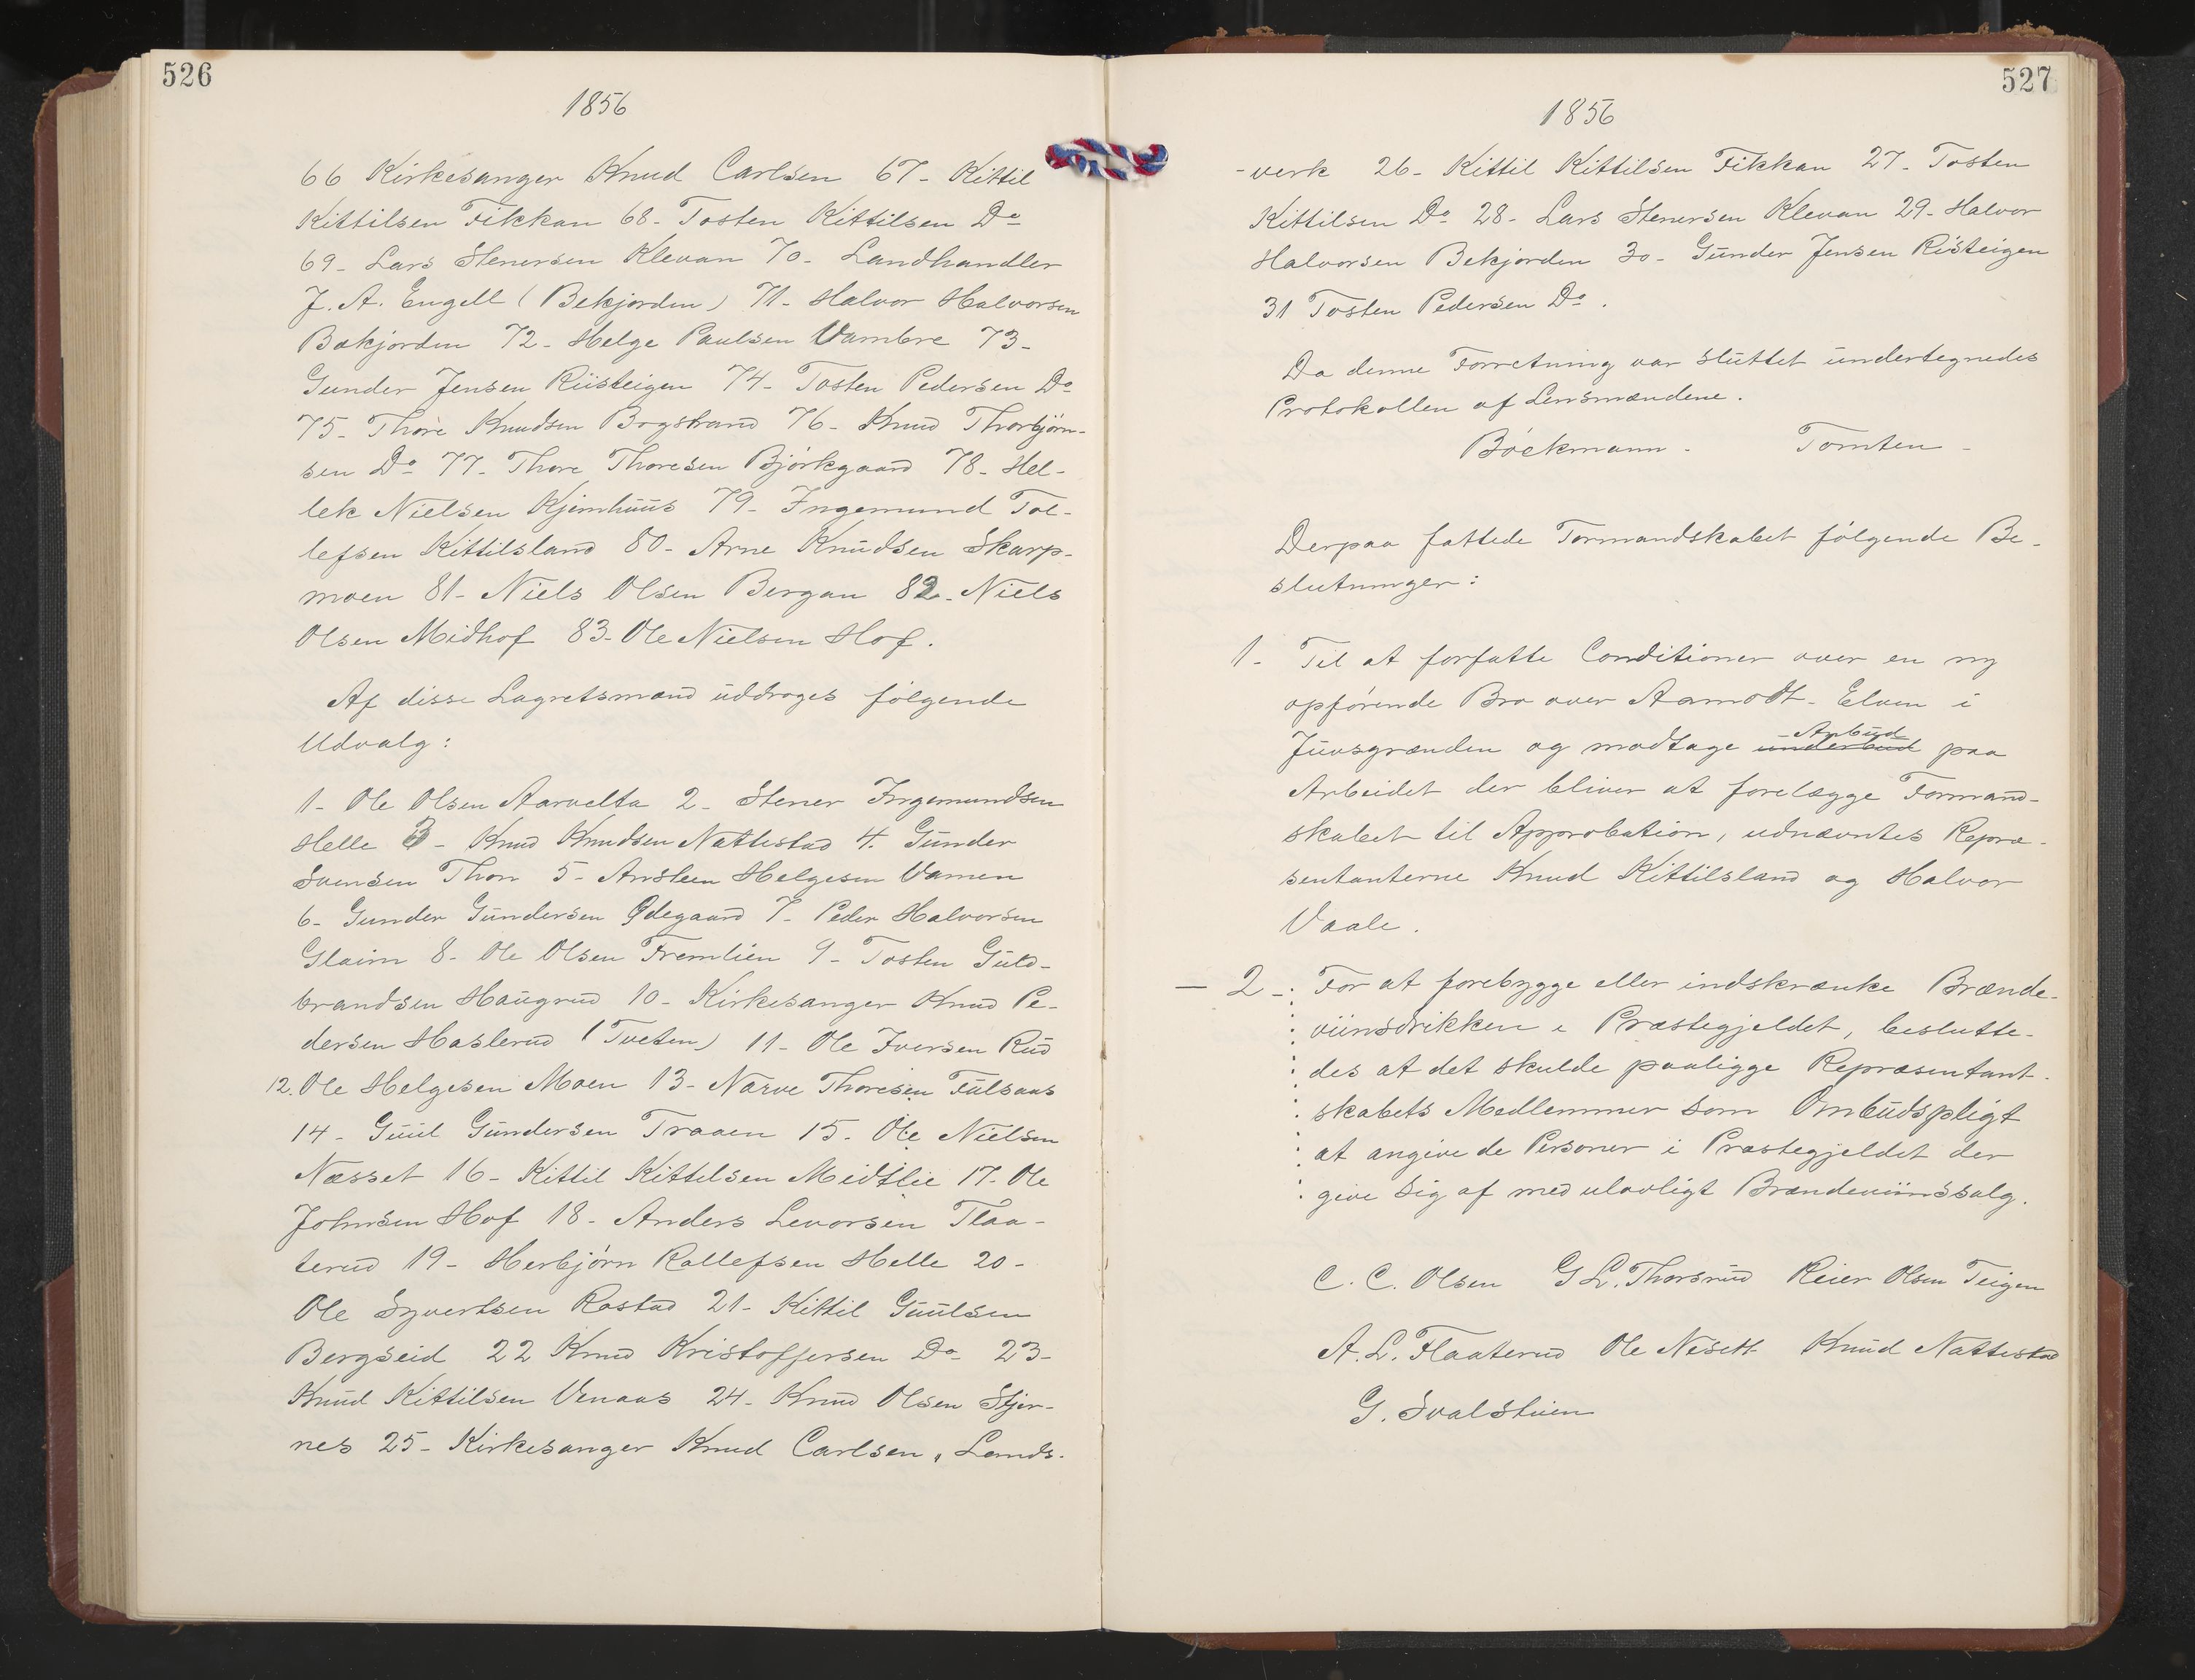 526
1856
66 Kirkesanger Knud Carlsen 67- Kittil
Kittilsen Fikkan 68- Tosten Kittilsen Do
69- Lars Stenersen Klevan 70- Landhandler
J. A. Engell (Bekjorden) 71- Halvor Halvorsen
Bækjorden 72- Helge Paulsen Vambre 73-
Gunder Jensen Riisteigen 74- Tosten Pedersen Do
75- Thore Knudsen Bogstrand 76- Knud Thorbjørn-
sen Do 77- Thore Thoresen Bjørkgaard 78- Hel-
lek Nielsen Kjemhuus 79- Ingemund Tol-
lefsen Kittilsland 80- Arne Knudsen Skarp-
moen 81- Niels Olsen Bergan 82- Niels
Olsen Midhof 83- Ole Nielsen Hof.
Af disse Lagretsmænd uddroges følgende
Udvalg:
1- Ole Olsen Aarvelta 2- Stener Ingemundsen
Helle 3- Knud Knudsen Nattestad 4. Gunder
Svensen Thon 5- Ansteen Helgesen Vamen
6- Gunder Gundersen Ødegaard 7- Peder Halvorsen
Glaim 8- Ole Olsen Fremlien 9- Tosten Guld-
brandsen Haugrud 10- Kirkesanger Knud Pe-
dersen Haslerud (Tveten) 11- Ole Iversen Rud
12. Ole Helgesen Moen 13- Narve Thoresen Fulsaas
14- Guul Gundersen Traaen 15- Ole Nielsen
Næsset 16- Kittil Kittilsen Midtlie 17- Ole
Johnsen Hof 18- Anders Levorsen Flaa-
terud 19- Herbjørn Rollefsen Helle 20-
Ole Syvertsen Rostad 21- Kittil Guulsen
Bergseid 22 Knud Kristoffersen Do- 23-
Knud Kittilsen Venaas 24- Knud Olsen Stjer-
nes 25- Kirkesanger Knud Carlsen, Lands-
527
1856
-verk 26- Kittil Kittilsen Fikkan 27- Tosten
Kittilsen Do 28- Lars Stenersen Klevan 29- Halvor
Halvorsen Bekjorden 30- Gunder Jensen Risteigen
31 Tosten Pedersen Do.
Da denne Forretning var sluttet undertegnedes
Protokollen af Lensmændene.
Böckmann - Tomten -
Derpaa fattede Formandskabet følgende Be-
slutninger:
1- Til at forfatte Conditioner over en ny
opførende Bro over Aamodt- Elven i
Anbud
Juvsgrænden og modtage underbud paa
Arbeidet der bliver at forelægge Formand-
skabet til Approbation, udnævntes Repræ-
sentanterne Knud Kittilsland og Halvor
Vaale.
- 2-: For at forebygge eller indskrænke Brænde-
viinsdrikken i Præstegjeldet, beslutte-
des at det skulde paaligge Repræsentant-
skabets Medlemmer som Ombudspligt
at angive de Personer i Præstegjeldet der
give sig af med ulovligt Brændeviinssalg.
C. C. Olsen G L. Thorsrud Reier Olsen Teigen
A. L. Flaaterud Ole Nesett Knud Nattestad
G. Svalstuen